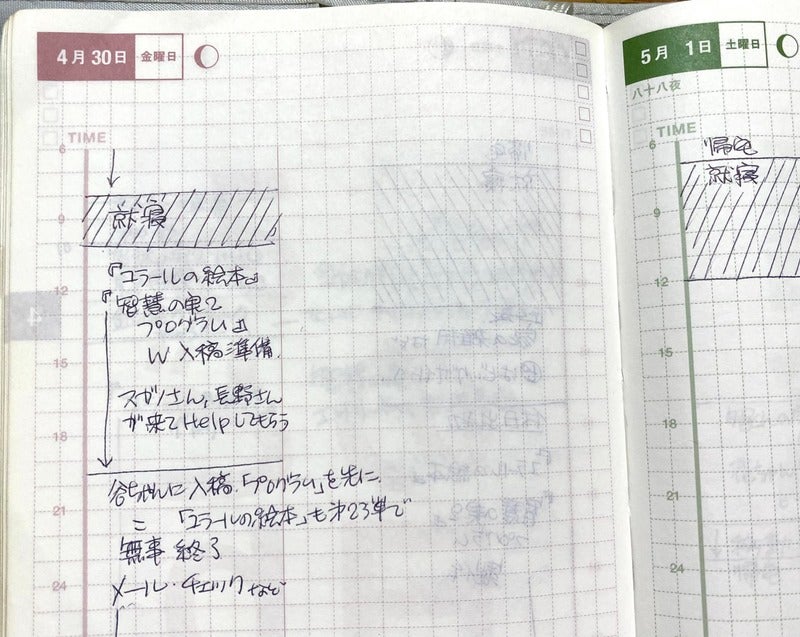 4月30日 金曜日
TIME
6
就寝
9
『コラールの絵本』
12
『智慧の実と
プログラム』
W入稿準備
15
スガノさん,長野さん
が来てHelpしてもらう
18
谷ちゃんに入稿.「プログラム」を先に.
21
「コラールの絵本」も
無事 終了
メール・チェックなど
24
4
5月 1日 土曜日
八十八夜
TIME
6
帰宅
就寝
9
12
15
18
21
24